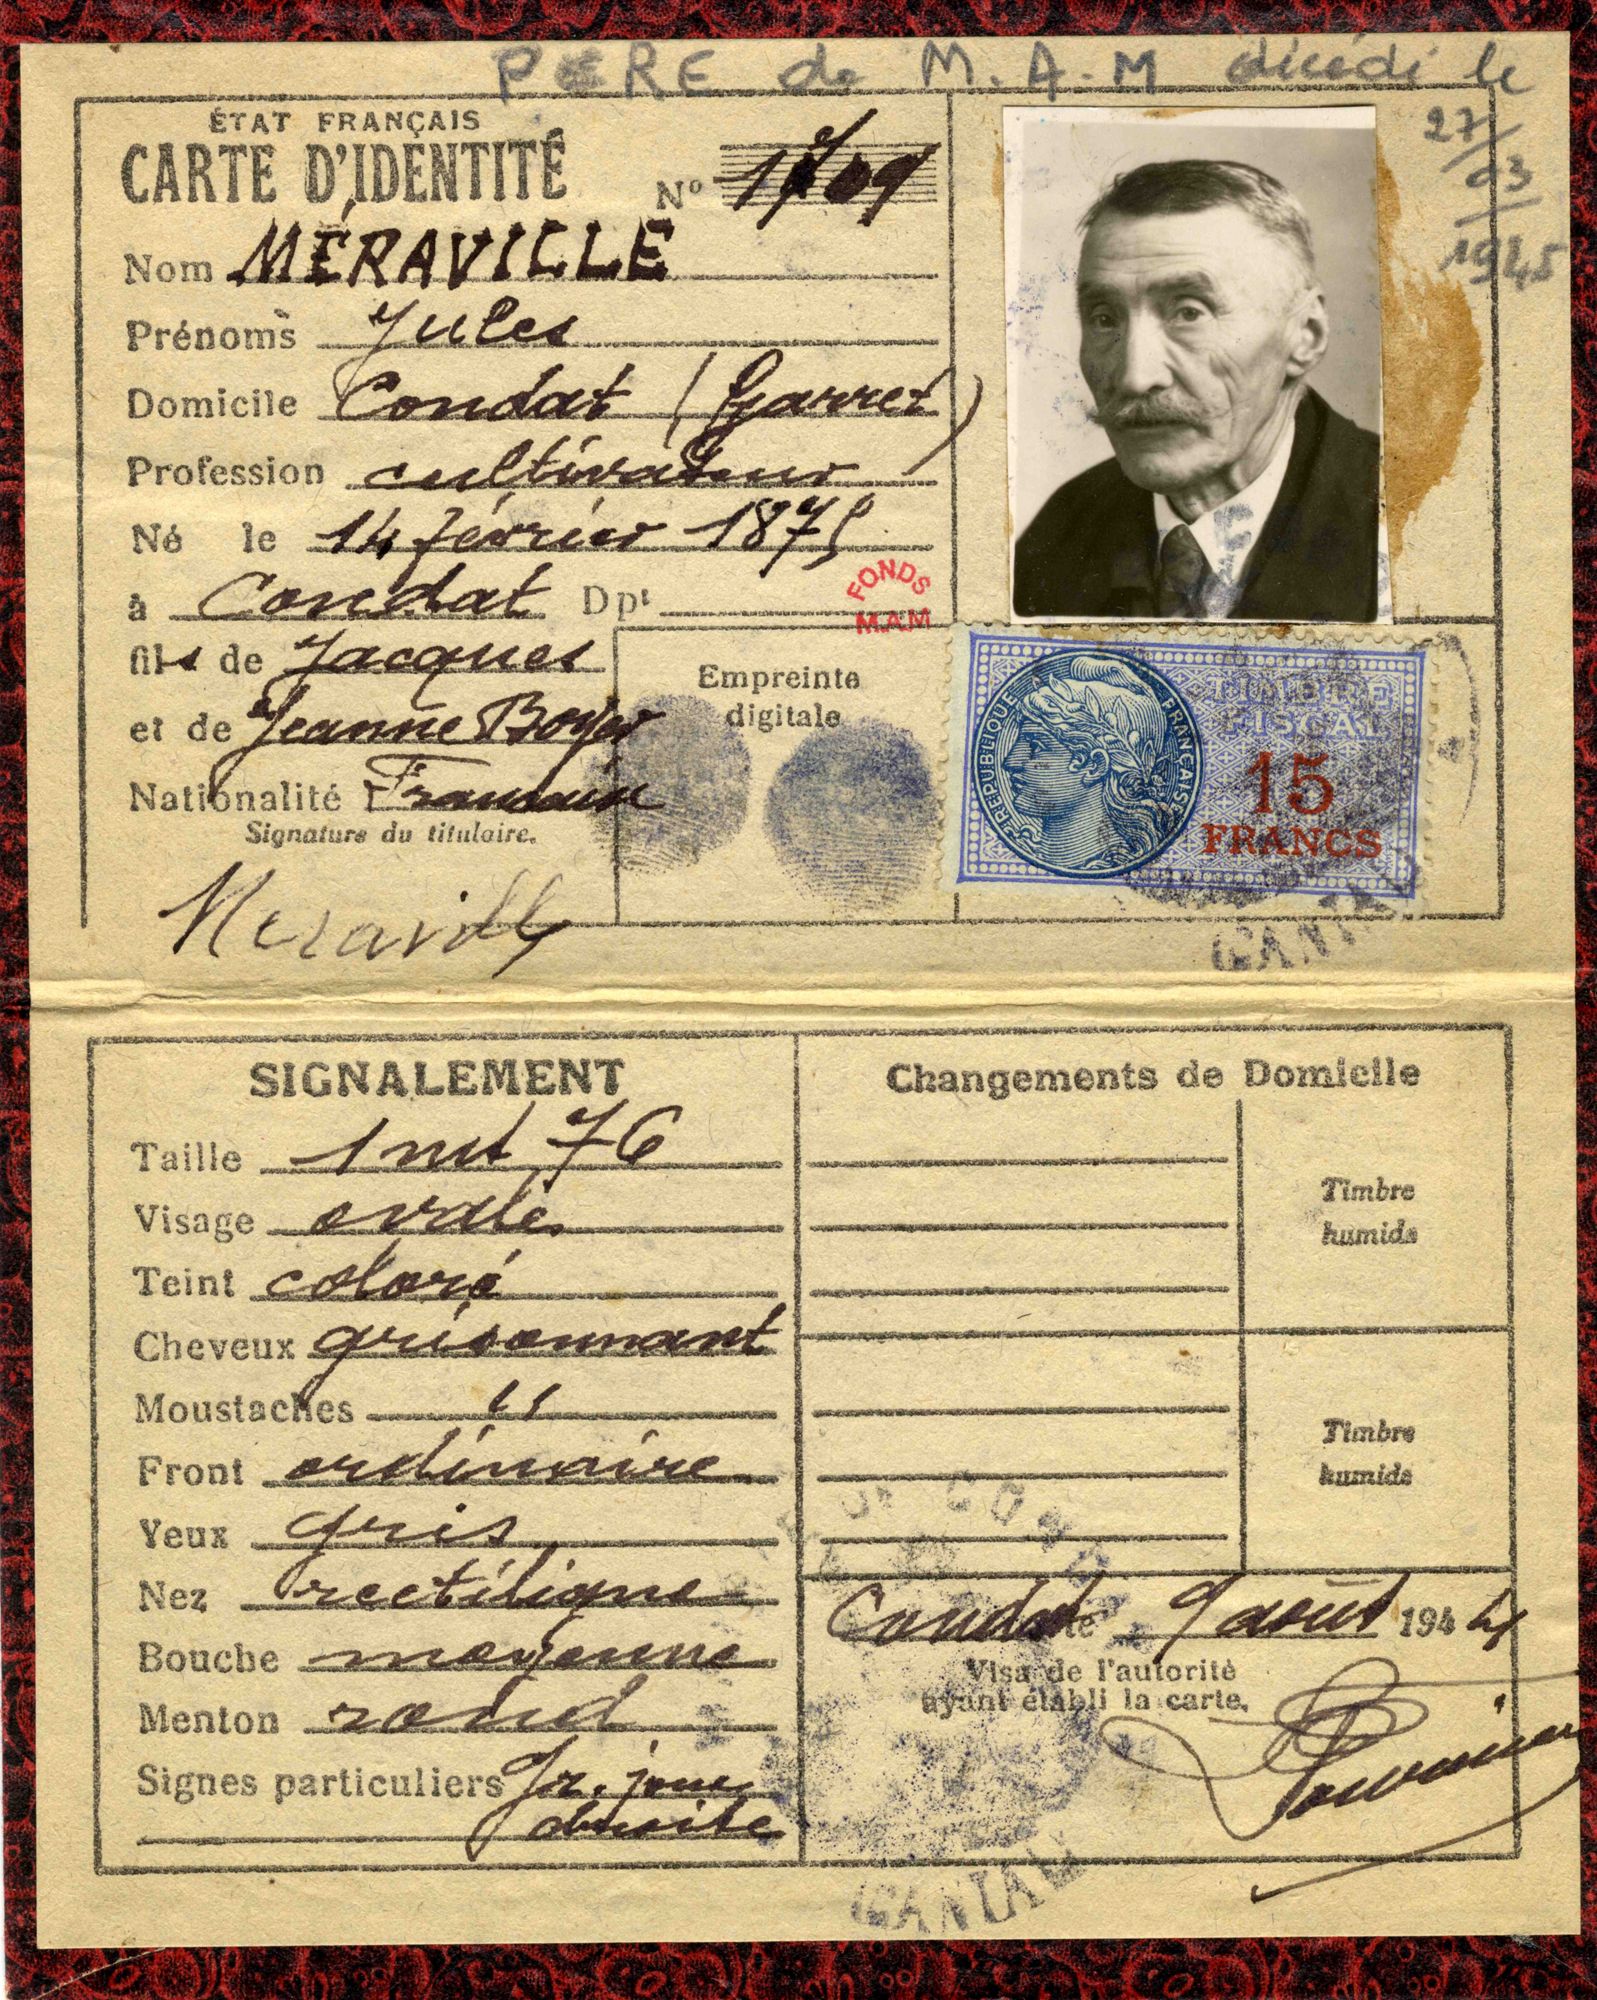 PERE de M.A.M décédé le
27/03/1945
ÉTAT FRANÇAIS
CARTE D'IDENTITÉ
Nº
Nom MÉRAVILLE
Prénoms Jules
Domicile Condat (Garret)
Profession cultivateur
Né le 14 février 1875
à Condat Dpt
FONDS
M.A.M
fils de Jacques
et de Jeanne Boyer
Nationalité Française
Signature du titulaire.
Meraville
Empreinte
digitale
RÉPUBLIQUE FRANÇAISE
TIMBRE
FISCAL
15
FRANCS
CANTAL
SIGNALEMENT
Taille 1 mt 76
Visage ovale
Teint coloré
Cheveux grisonnant
Moustaches "
Front ordinaire
Yeux gris
Nez rectiligne
Bouche moyenne
Menton rond
Signes particuliers joue
droite
Changements de Domicile
Timbre
humide
Timbre
humide
Condat le 9 août 1944
Visa de l'autorité
ayant établi la carte.
CANTAL